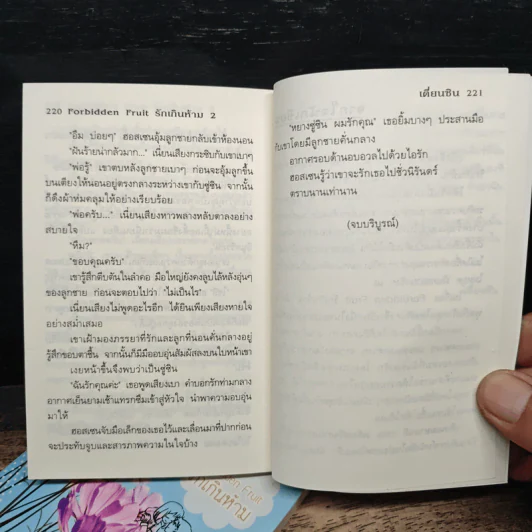 220 Forbidden Fruit รักเกินห้าม 2
"อืม บ่อยๆ" ฮอสเซนอุ้มลูกชายกลับเข้าห้องนอน
"ฝันร้ายน่ากลัวมาก..." เนี่ยนเสียงกระซิบกับเขาเบาๆ
"พ่อรู้" เขาตบหลังลูกชายเบาๆ ก่อนจะอุ้มลูกขึ้น
บนเตียงให้นอนอยู่ตรงกลางระหว่างเขากับซู่ซิน จากนั้น
ก็ดึงผ้าห่มคลุมให้อย่างเรียบร้อย
"พ่อครับ..." เนี่ยนเสียงหาวพลางหลับตาลงอย่าง
สบายใจ
"หืม?"
"ขอบคุณครับ"
เขารู้สึกตีบตันในลำคอ มือใหญ่ยังคงลูบไล้หลังอุ่นๆ
ของลูกชาย ก่อนจะตอบไปว่า "ไม่เป็นไร"
เนี่ยนเสียงไม่พูดอะไรอีก ได้ยินเพียงเสียงหายใจ
อย่างสม่ำเสมอ
เขาเฝ้ามองภรรยาที่รักและลูกที่นอนคั่นกลางอยู่
รู้สึกขอบตาชื้น จากนั้นก็มีมืออบอุ่นสัมผัสลงบนใบหน้าเขา
เงยหน้าขึ้นจึงพบว่าเป็นซู่ซิน
"ฉันรักคุณค่ะ" เธอพูดเสียงเบา คำบอกรักท่ามกลาง
อากาศเย็นยามเช้าแทรกซึมเข้าสู่หัวใจ นำพาความอบอุ่น
มาให้
ฮอสเซนจับมือเล็กของเธอไว้และเลื่อนมาที่ปากก่อน
จะประทับจูบและสารภาพความในใจบ้าง
เตี่ยนซิน 221
"หยางซู่ซิน ผมรักคุณ" เธอยิ้มบางๆ ประสานมือ
กับเขาโดยมีลูกชายคั่นกลาง
อากาศรอบด้านอบอวลไปด้วยไอรัก
ฮอสเซนรู้ว่าเขาจะรักเธอไปชั่วนิรันดร์
ตราบนานเท่านาน
(จบบริบูรณ์)
Fruit
กเกินห้าม